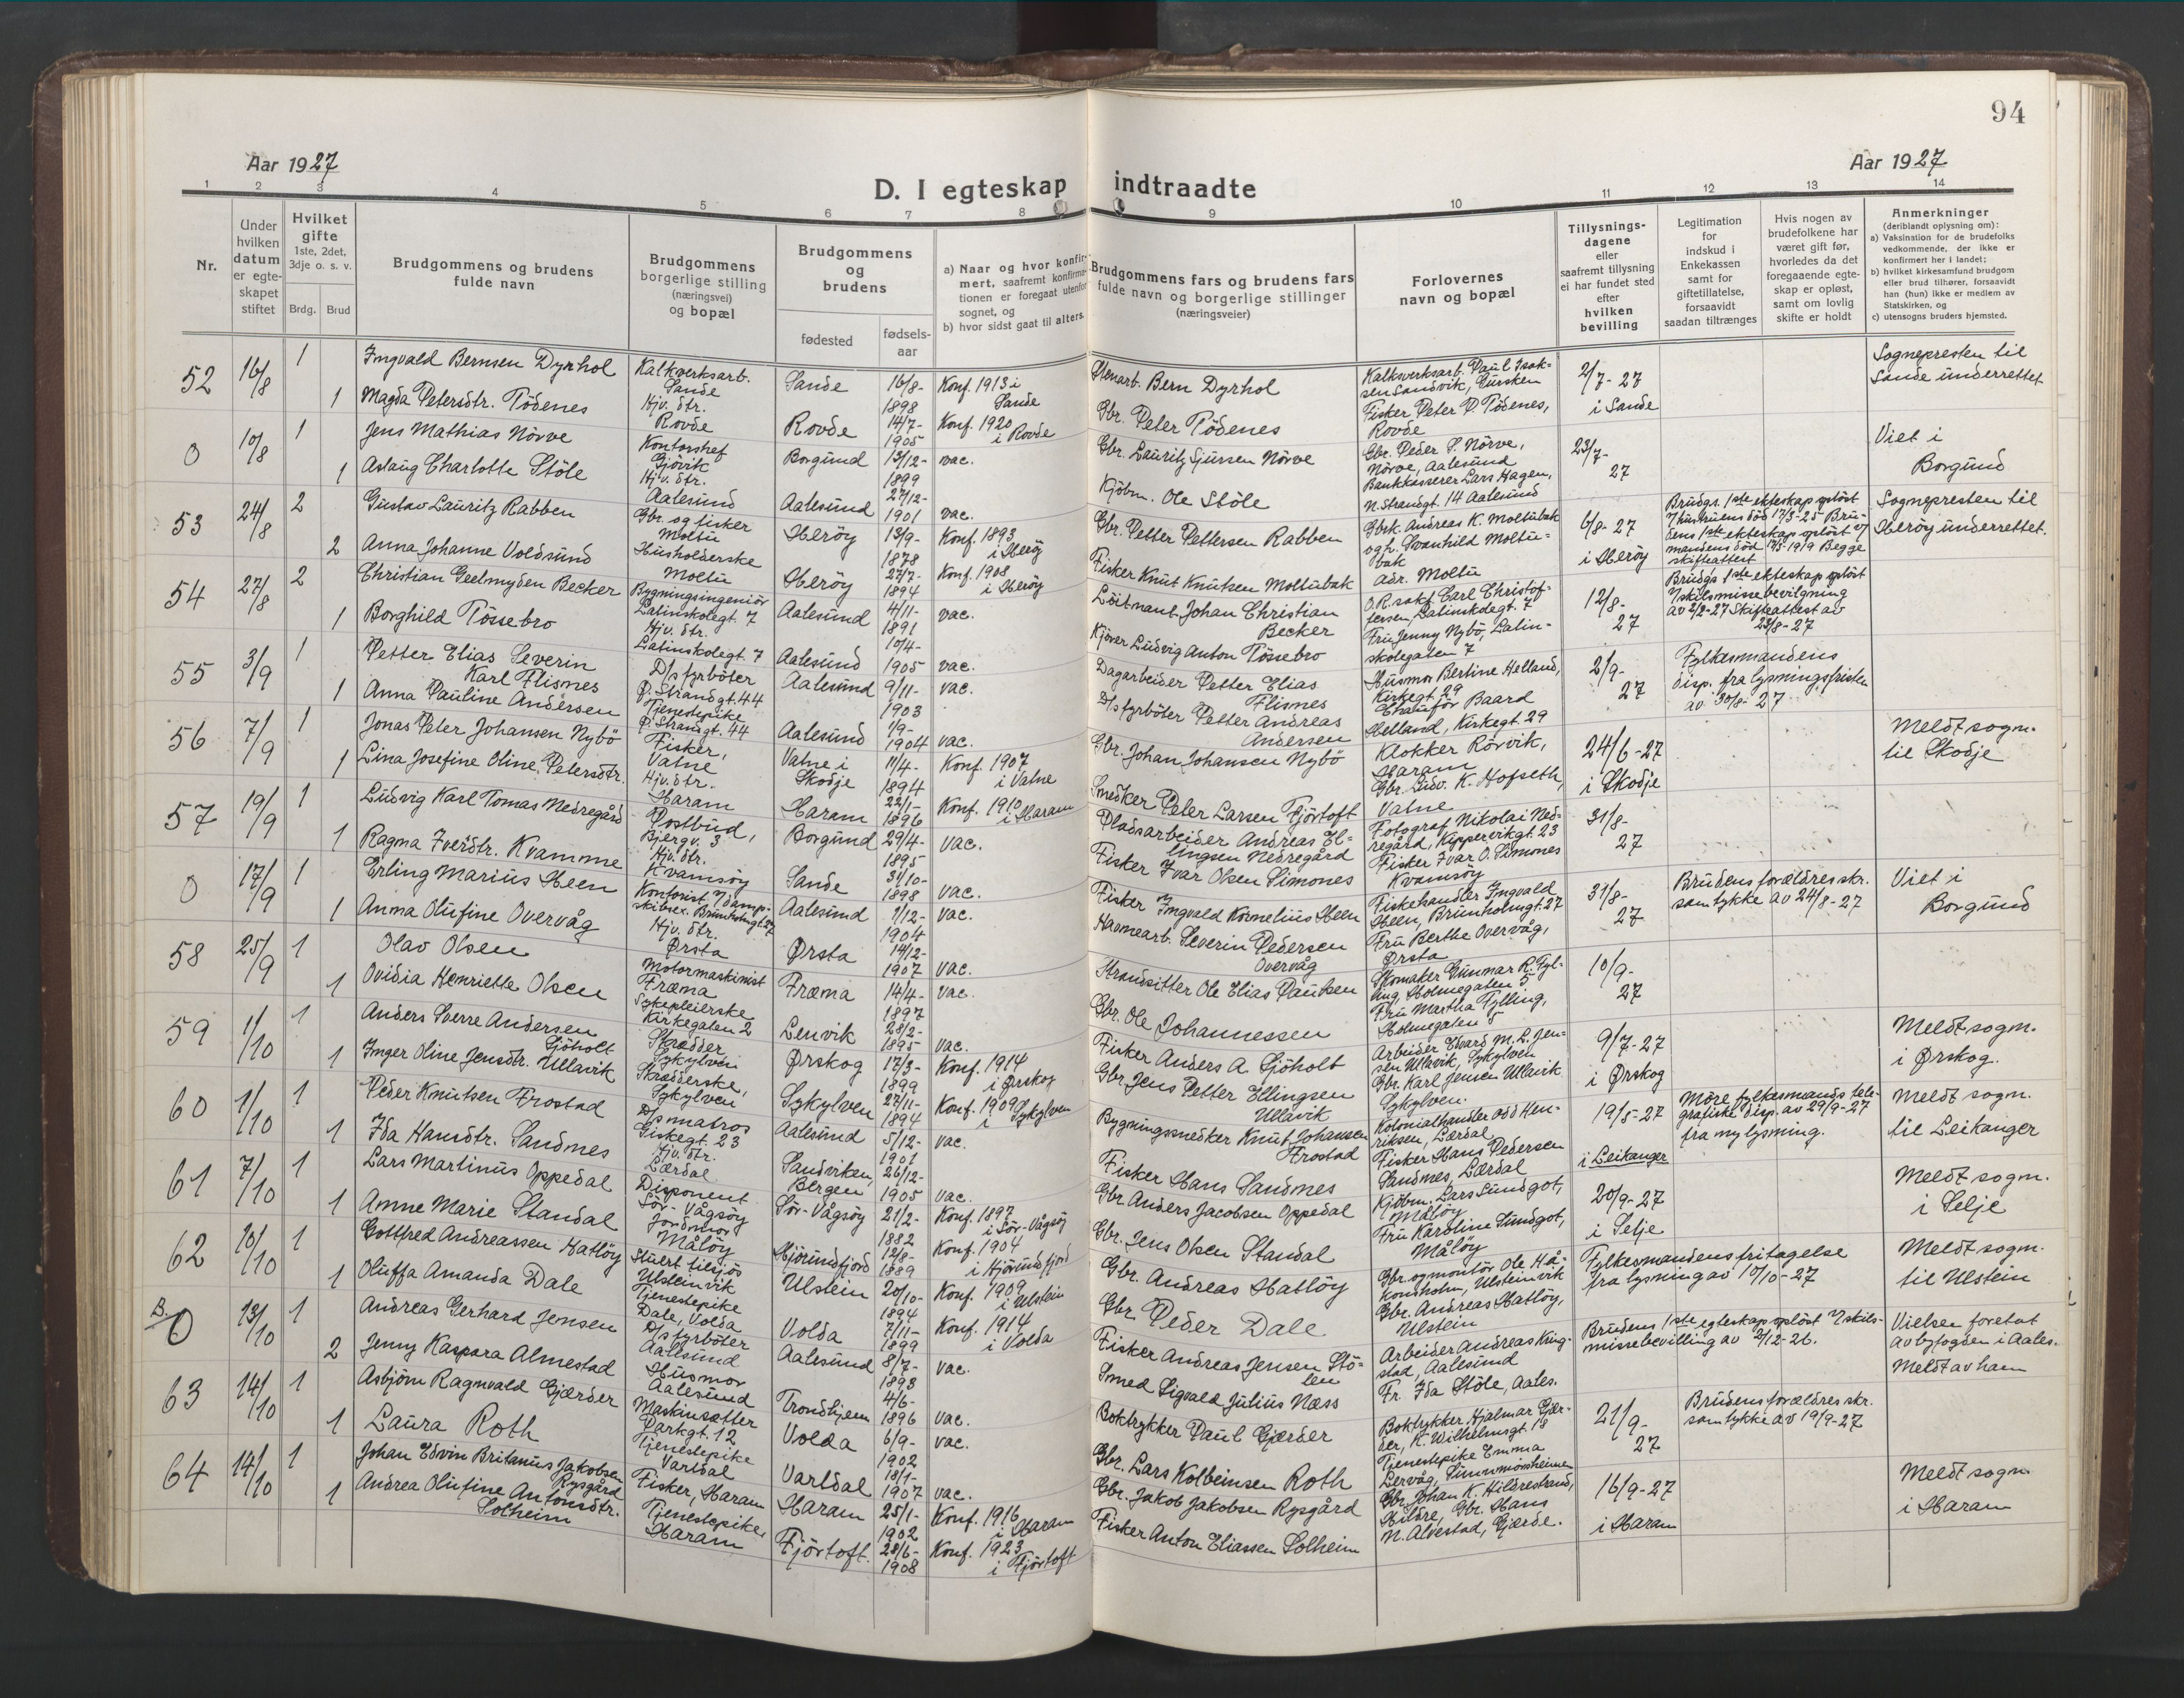 94
Aar 1927
Aar 1927
D. I egteskap indtraadte
1 2 3 4 5 6 7 8 9 10 11 12 13 14
Nr.
Under
hvilken
datum
er egte-
skapet
stiftet
Hvilket
gifte
1ste, 2det,
3dje o. s. v.
Brdg. Brud
Brudgommens og brudens
fulde navn
Brudgommens
borgerlige stilling
(næringsvei)
og bopæl
Brudgommens
og
brudens
fødested
fødsels-
aar
a) Naar og hvor konfir-
mert, saafremt konfirma-
tionen er foregaat utenfor
sognet, og
b) hvor sidst gaat til alters.
Brudgommens fars og brudens fars
fulde navn og borgerlige stillinger
(næringsveier)
Forlovernes
navn og bopæl
Tillysnings-
dagene
eller
saafremt tillysning
ei har fundet sted
efter
hvilken
bevilling
Legitimation
for
indskud i
Enkekassen
samt for
giftetillatelse,
forsaavidt
saadan tiltrænges
Hvis nogen av
brudefolkene har
været gift før,
hvorledes da det
foregaaende egte-
skap er opløst,
samt om lovlig
skifte er holdt
Anmerkninger
(deriblandt oplysning om):
a) Vaksination for de brudefolks
vedkommende, der ikke er
konfirmert her i landet;
b) hvilket kirkesamfund brudgom
eller brud tilhører, forsaavidt
han (hun) ikke er medlem av
Statskirken, og
c) utensogns bruders hjemsted.
52 16/8 1
Ingvald Bernsen Dyrhol
Kalkverksarb.
Sande
Sande
16/8-
1898
Konf. 1913 i
Sande
Stenarb. Bern Dyrhol
Kalksverksarb. Paul Isak-
sen Sandvik, Gursken
2/7-27
i Sande
Sognepresten til
Sande underrettet.
1
Magda Petersdtr. Tödenes
Hjv. dtr.
Rovde
Rovde
14/7-
1905
Konf. 1920
i Rovde
Gbr. Peter Tödenes
Fisker Peter P. Tödenes,
Rovde
0 10/8 1
Jens Mathias Nörve
Kontorshef
Gjövik
Borgund
13/12-
1899
vac.
Gbr. Lauritz Sjursen Nörve
Gbr. Peder S. Nörve,
Nörve, Aalesund
23/7-
27
Viet i
Borgund
1
Aslaug Charlotte Stöle
Hjv. dtr.
Aalesund
Aalesund
27/12-
1901
vac.
Kjöbm. Ole Stöle
Bankkasserer Lars Hagen,
N. Strandgt. 14 Aalesund
53 24/8 2
Gustav Lauritz Rabben
Gbr. og fisker
Moltu
Heröy
13/9-
1878
Konf. 1893
i Heröy
Gbr. Petter Pettersen Rabben
Gbrk. Andreas K. Moltubak
og h. Svanhild Moltu-
bak
adr. Moltu
6/8-27
i Heröy
Brudgs. 1ste ekteskap oplöst
v/hustruens död 17/3-25 Bru-
dens 1ste ekteskap oplöst v/
mandens död 17/5-1919 Begge
skifteattest
Sognepresten til
Heröy underrettet.
2
Anna Johanne Voldsund
Husholderske
Moltu
Heröy
27/7-
1894
Konf. 1908
i Heröy
Fisker Knut Knutsen Moltubak
54 27/8 2
Christian Geelmyden Becker
Bygningsingeniör
Latinskolegt. 7
Aalesund
4/11-
1891
vac.
Löitnant Johan Christian
Becker
O.R.sakf. Carl Christof-
fersen, Latinskolegt. 7
12/8-
27
Brudgs 1ste ekteskap oplöst
v/skilsmissebevilgning
av 2/2-27 Skifteattest av
23/8-27
1
Borghild Tössebro
Hjv. dtr.
Latinskolegt. 7
Aalesund
10/4-
1905
vac.
Kjörer Ludvig Anton Tössebro
Fru Jenny Nybö, Latin-
skolegaten 7
55 3/9 1
Petter Elias Severin
Karl Flisnes
D/s fyrböter
Ø. Strandgt. 44
Aalesund
9/11-
1903
vac.
Dagarbeider Petter Elias
Flisnes
Husmor Bertine Helland,
Kirkegt. 29
2/9-
27
Fylkesmandens
disp. fra lysningsfristen
av 30/8-27
1
Anna Pauline Andersen
Tjenestepike
Ø. Strandgt. 44
Aalesund
1/9-
1904
vac.
D/s fyrböter Petter Andreas
Andersen
Chauför Baard
Helland, Kirkegt. 29
56 7/9 1
Jonas Peter Johansen Nybö
Fisker,
Vatne
Vatne i
Skodje
11/4-
1894
Konf. 1907
i Vatne
Gbr. Johan Johansen Nybö
Klokker Rörvik,
Haram
24/6-27
i Skodje
Meldt sogn.
til Skodje
1
Lina Josefine Oline Petersdtr.
Hjv. dtr.
Haram
Haram
22/1-
1896
Konf. 1910
i Haram
Snedker Peter Larsen Fjörtoft
Gbr. Ludv. K. Hofseth,
Vatne
57 19/9 1
Ludvig Karl Tomas Nedregård
Postbud,
Bjergv. 3
Borgund
29/4-
1895
vac.
Pladsarbeider Andreas El-
lingsen Nedregård
Fotograf Nikolai Ned-
regård, Kippervikgt. 23
31/8-
27
1
Ragna Iversdtr. Kvamme
Hjv. dtr.
Kvamsöy
Sande
31/10-
1898
vac.
Fisker Ivar Olsen Simones
Fisker Ivar O. Simones
Kvamsöy
0 17/9 1
Erling Marius Heen
Kontorist v/damp-
skibsex. Brunholmgt. 27
Aalesund
1/12-
1904
vac.
Fisker Ingvald Kornelius Heen
Fiskehandler Ingvald
Heen, Brunholmgt. 27
31/8-
27
Brudens forældres skr.
samtykke av 24/8-27
Viet i
Borgund
1
Anna Olufine Overvåg
Hjv. dtr.
Ørsta
Ørsta
14/12-
1907
vac.
Havnearb. Severin Pedersen
Overvåg
Fru Berthe Overvåg,
Ørsta
58 25/9 1
Olav Olsen
Motormaskinist
Fræna
Fræna
14/4-
1897
vac.
Strandsitter Ole Elias Paulsen
Skomaker Gunnar R. Fyl-
ling, Holmegaten 5
10/9-
27
1
Ovidia Henriette Olsen
Sykepleierske
Kirkegaten 2
Lenvik
28/2-
1895
vac.
Gbr. Ole Johannessen
Fru Martha Fylling,
Holmegaten 5
59 1/10 1
Anders Sverre Andersen
Sjöholt
Skrædder
Sykylven
Ørskog
17/3-
1899
Konf. 1914
i Ørskog
Fisker Anders A. Sjöholt
Arbeider Edvard M. L. Jen-
sen Ullavik, Sykylven
9/7-27
i Ørskog
Meldt sogn.
i Ørskog.
1
Inger Oline Jensdtr. Ullavik
Skrædderske,
Sykylven
Sykylven
27/11-
1894
Konf. 1909
i Sykylven
Gbr. Jens Petter Ellingsen
Ullavik
Gbr. Karl Jensen Ullavik
Sykylven.
60 1/10 1
Peder Knutsen Frostad
D/s matros
Giskegt. 23
Aalesund
5/12-
1901
vac.
Bygningssnedker Knut Johansen
Frostad
Kolonialhandler Odd Hen-
riksen, Lærdal
19/8-27
i Leikanger
Möre fylkesmands tele-
grafiske disp. av 29/9-27
fra ny lysning.
Meldt sogn.
til Leikanger
1
Ida Hansdtr. Sandnes
Hjv. dtr.
Lærdal
Sandviken,
Bergen
26/12-
1905
vac.
Fisker Hans Sandnes
Fisker Hans Pedersen
Sandnes, Lærdal
61 7/10 1
Lars Martinus Oppedal
Disponent
Sör-Vågsöy
Sör-Vågsöy
21/2-
1882
Konf. 1897
i Sör-Vågsöy
Gbr. Anders Jacobsen Oppedal
Kjöbm. Lars Sundgot,
Målöy
20/9-27
i Selje
Meldt sogn.
i Selje
1
Anne Marie Standal
Jordmor
Målöy
Hjörundfjord
12/8-
1889
Konf. 1904
i Hjörundfjord
Gbr. Jens Olsen Standal
Fru Karoline Sundgot,
Målöy
62 10/10 1
Gottfred Andreassen Hatlöy
Stuert tilsjös
Ulsteinvik
Ulstein
20/10-
1894
Konf. 1909
i Ulstein
Gbr. Andreas Hatlöy
Gbr. og montör Ole Hå-
konsholm, Ulsteinvik
Fylkesmandens fritagelse
fra lysning av 10/10-27
Meldt sogn.
til Ulstein
1
Oluffa Amanda Dale
Tjenestepike
Dale, Volda
Volda
7/11-
1899
Konf. 1914
i Volda
Gbr. Peder Dale
Gbr. Andreas Hatlöy,
Ulstein
B. 0 13/10 1
Andreas Gerhard Jensen
D/s fyrböter
Aalesund
Aalesund
8/7-
1893
vac.
Fisker Andreas Jensen Stö-
len
Arbeider Andreas Ring-
stad, Aalesund
Brudens 1ste egteskap oplöst v/skils-
missebevilling av 2/12-26.
Vielsen foretat
av byfogden i Aales.
Meldt av ham
2
Jenny Kaspara Almestad
Husmor
Aalesund
Trondhjem
4/6-
1896
vac.
Smed Sigvald Julius Næss
Fr. Ida Stöle, Aales.
63 14/10 1
Asbjörn Ragnvald Gjærder
Maskinsætter
Parkgt. 12
Volda
6/9-
1902
vac.
Boktrykker Paul Gjærder
Boktrykker Hjalmar Gjær-
der, K. Wilhelmsgt. 18
21/9-
27
Brudens forældres skr.
samtykke av 19/9-27
1
Laura Roth
Tjenestepike
Vartdal
Vartdal
18/1-
1907
vac.
Gbr. Lars Kolbeinsen Roth
Tjenestepike Emma
Lervåg, Sunnmörsheimen
64 14/10 1
Johan Edvin Britanus Jakobsen
Rysgård
Fisker, Haram
Haram
25/1-
1902
Konf. 1916
i Haram
Gbr. Jakob Jakobsen Rysgård
Gbr. Johan K. Hildrestrand,
Hildre, Gbr. Hans
N. Alvestad, Gjærde.
16/9-27
i Haram
Meldt sogn.
i Haram
1
Andrea Olufine Antonsdtr.
Solheim
Tjenestepike,
Haram
Fjörtoft.
28/6-
1908
Konf. 1923
i Fjörtoft
Fisker Anton Eliassen Solheim